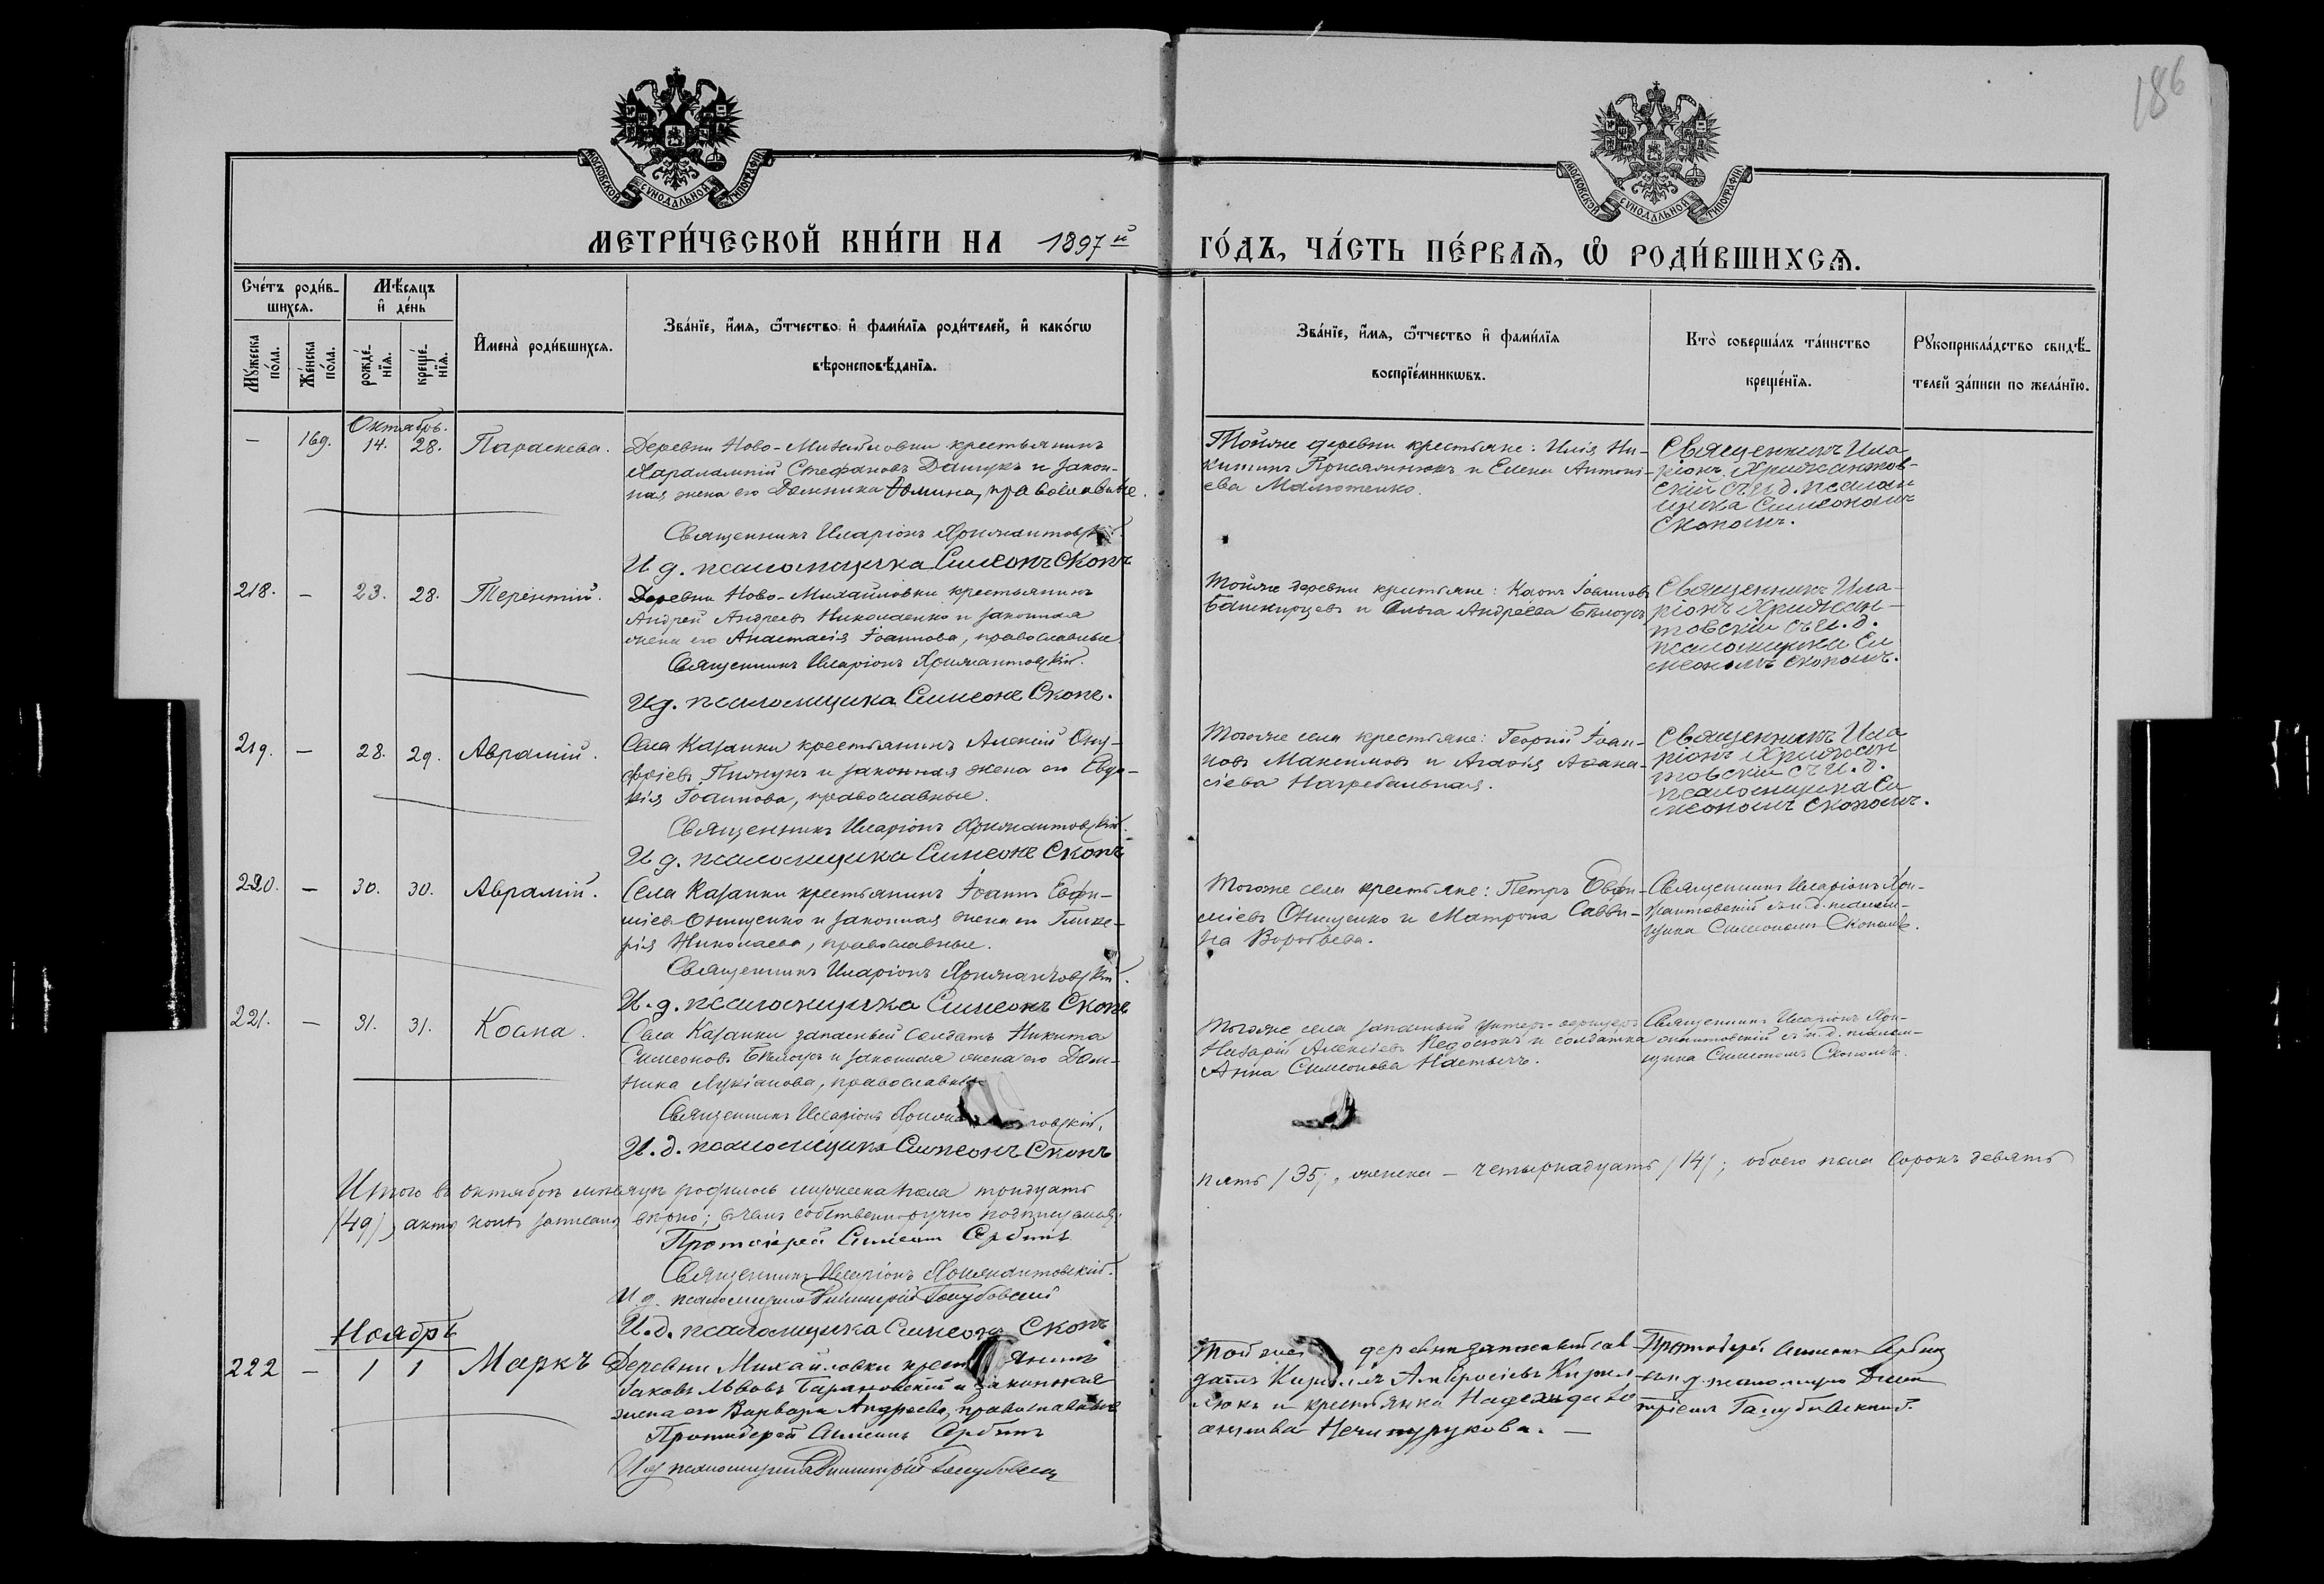 186
МОСКОВСКОЙ СѴНОДАЛЬНОЙ ТИПОГРАФІИ
МОСКОВСКОЙ СѴНОДАЛЬНОЙ ТИПОГРАФІИ
МЕТРИ́ЧЕСКОЙ КНИ́ГИ НА 1897й
ГО́ДЪ, ЧА́СТЬ ПЕ́РВАѦ, Ѡ҆ РОДИ́ВШИХСѦ.
Сче́тъ роди́в-
шихсѧ.
Мꙋ́жеска по́ла.
Же́нска по́ла.
Мѣ́сѧцъ
и҆ де́нь
рожде́-
нїѧ.
креще́-
нїѧ.
И҆мена̀ роди́вшихсѧ.
Зва́нїе, и҆́мѧ, ѻ҆́тчество и҆ фами́лїѧ роди́телей, и҆ како́гѡ
вѣроисповѣ́данїѧ.
Зва́нїе, и҆́мѧ, ѻ҆́тчество и҆ фами́лїѧ
воспрїе́мникѡвъ.
Кто̀ соверша́лъ та́инство
креще́нїѧ.
Рꙋкоприкла́дство свидѣ́-
телей за́писи по жела́нїю.
Октябрь.
— 169. 14. 28. Параскева.
Деревни Ново-Михайловки крестьянинъ
Харалампій Стефановъ Данчукъ и закон-
ная жена его Домника Ѳомина, православные.
Священникъ Иларіонъ Хрижантовскій.
И д. псаломщика Симеонъ Скопъ
Тойже деревни крестьяне: Илія Ни-
китинъ Присяжнюкъ и Елена Антоні-
ева Малютенко.
Священникъ Ила
ріонъ Хрижантов-
скій съ и. д. псалом
щика Симеономъ
Скопомъ.
218. — 23. 28. Терентій.
Деревни Ново-Михайловки крестьянинъ
Андрей Андреевъ Николаенко и законная
жена его Анастасія Іоаннова, православные
Священникъ Иларіонъ Хрижантовскій.
И д. псаломщика Симеонъ Скопъ.
Тойже деревни крестьяне: Карпъ Іоанновъ
Башкирцевъ и Ольга Андреева Бѣлоусъ
Священникъ Ила-
ріонъ Хрижан-
товскій съ и. д.
псаломщика Си
меономъ Скопомъ.
219. — 28. 29. Аврамій.
Села Казанки крестьянинъ Алексій Ону-
фріевъ и законная жена его Евдо-
кія Іоаннова, православные.
Священникъ Иларіонъ Хрижантовскій.
И д. псаломщика Симеонъ Скопъ
Тогоже села крестьяне: Георгій Іоан-
новъ Максимовъ и Агаѳія Аѳана-
сіева Нагребельная.
Священникъ Ила
ріонъ Хрижан
товскій съ и. д.
псаломщика Си
меономъ Скопомъ.
220. — 30. 30. Аврамій.
Села Казанки крестьянинъ Іоаннъ Евфи-
міевъ Онищенко и законная жена его Глике-
рія Николаева, православные.
Священникъ Иларіонъ Хрижантовскій.
И. д. псаломщика Симеонъ Скопъ
Тогоже села крестьяне: Петръ Евфи-
міевъ Онищенко и Матрона Савви-
на Воробьева.
Священникъ Иларіонъ Хри-
жантовскій съ и. д. псалом-
щика Симеономъ Скопомъ.
221. — 31. 31. Косма.
Села Казанки запасный солдатъ Никита
Симеоновъ Бѣлоусъ и законная жена его Дом-
ника Лукіанова, православные
Священникъ Иларіонъ товскій.
И. д. псаломщика Симеонъ Скопъ
Тогоже села запасный унтеръ-офицеръ
Назарій Алексіевъ и солдатка
Анна Симеонова
Священникъ Иларіонъ Хри-
жантовскій съ и. д. псалом-
щика Симеономъ Скопомъ.
Итого въ октябрѣ мѣсяцѣ родилось мужеска пола тридцать
пять /35/, женска — четырнадцать /14/; обоего пола сорокъ девять
/49/, записаны вѣрно; въ чемъ собственноручно подписуемся.
Протоіерей Симеонъ Сербинъ
Священникъ Иларіонъ Хрижантовскій.
И д. псаломщика Димитрій Голубовскій
И. д. псаломщика Симеонъ Скопъ
Ноябрь
222 — 1 1 Маркъ
Деревни Михайловки крест янинъ
Іаковъ Львовъ Барановскій и законная
жена его Варвара Андреева, православные
Протоіерей Симеонъ Сербинъ
И д псаломщика Димитрій Голубовскій
Той же деревни запасный сол
датъ Кириллъ Амвросіевъ Кирил
люкъ и крестьянка Надежда
Нечипурукова. —
Протоіерей Симеонъ Сербинъ
съ и. д. псаломщика Дими
тріемъ Голубовскимъ.